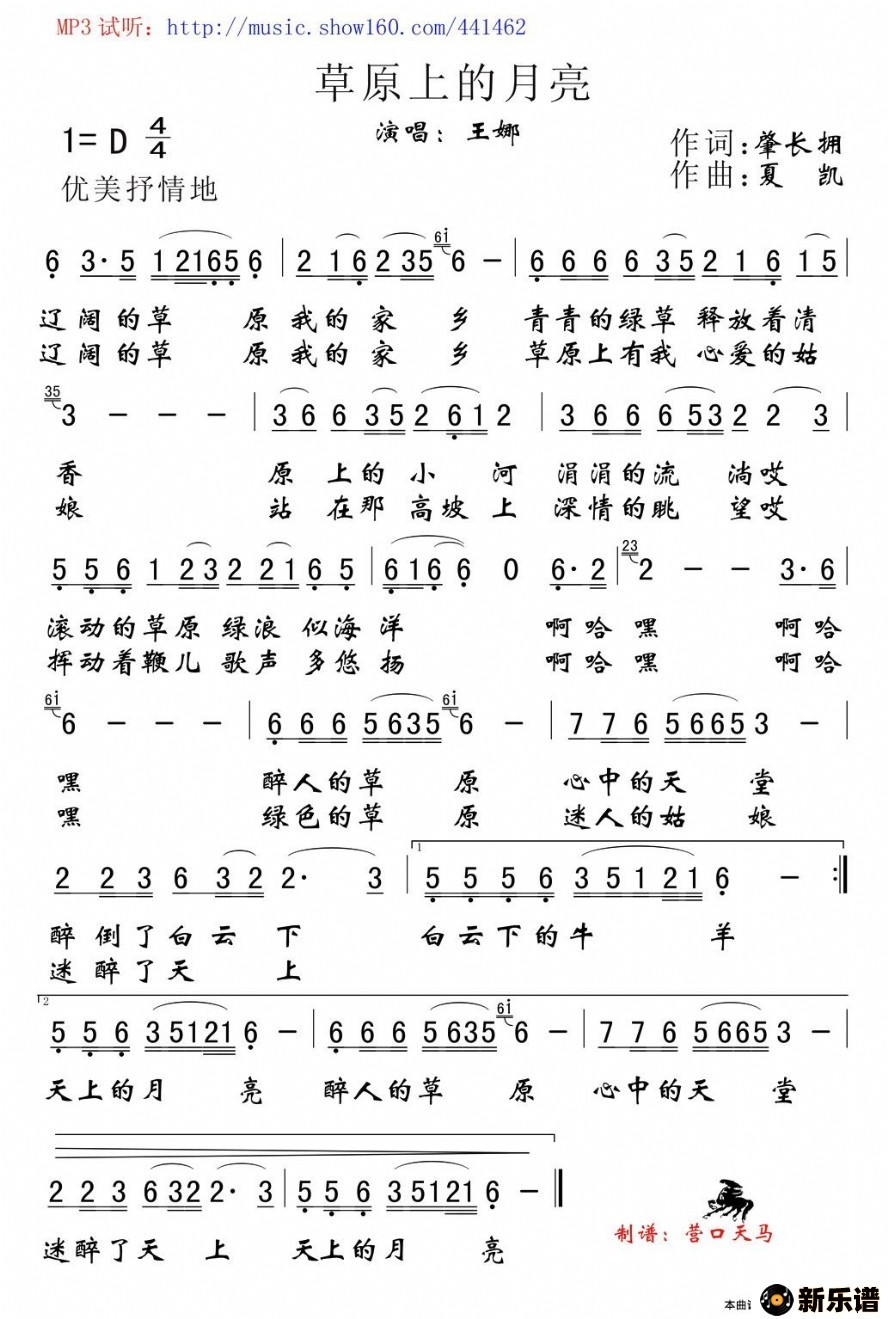 MP3 试听：http://music.show160.com/441462
草原上的月亮
演唱：王娜
1= D 4/4
作词：肇长拥
优美抒情地
作曲：夏 凯
6 3· 5 1 2 1 6 5 6 | 2 1 6 2 3 5 6i 6 － | 6 6 6 6 3 5 2 1 6 1 5 |
辽阔的草 原 我的 家 乡 青青的绿草 释放着清
辽阔的草 原 我的 家 乡 草原上有我 心爱的姑
35 3 － － － | 3 6 6 3 5 2 6 1 2 | 3 6 6 6 5 3 2 2 3 |
香 原 上的 小 河 涓涓的流 淌哎
娘 站 在那 高坡 上 深情的眺 望哎
5 5 6 1 2 3 2 2 1 6 5 | 6 1 6 6 0 6· 2 | 23 2 － － 3· 6 |
滚动的草原 绿浪 似海 洋 啊哈 嘿 啊哈
挥动着鞭儿 歌声 多悠 扬 啊哈 嘿 啊哈
6i 6 － － － | 6 6 6 5 6 3 5 6i 6 － | 7 7 6 5 6 6 5 3 － |
嘿 醉人的草 原 心中的天 堂
嘿 绿色的草 原 迷人的姑 娘
2 2 3 6 3 2 2· 3 | 1 5 5 5 6 3 5 1 2 1 6 － :|
醉 倒了白云 下 白云下的牛 羊
迷 醉了天 上
2 5 5 6 3 5 1 2 1 6 － | 6 6 6 5 6 3 5 6i 6 － | 7 7 6 5 6 6 5 3 － |
天上的月 亮 醉人的草 原 心中的天 堂
2 2 3 6 3 2 2· 3 | 5 5 6 3 5 1 2 1 6 － ‖
迷醉了天 上 天上的月 亮
制谱：营口天马
本曲 新乐谱